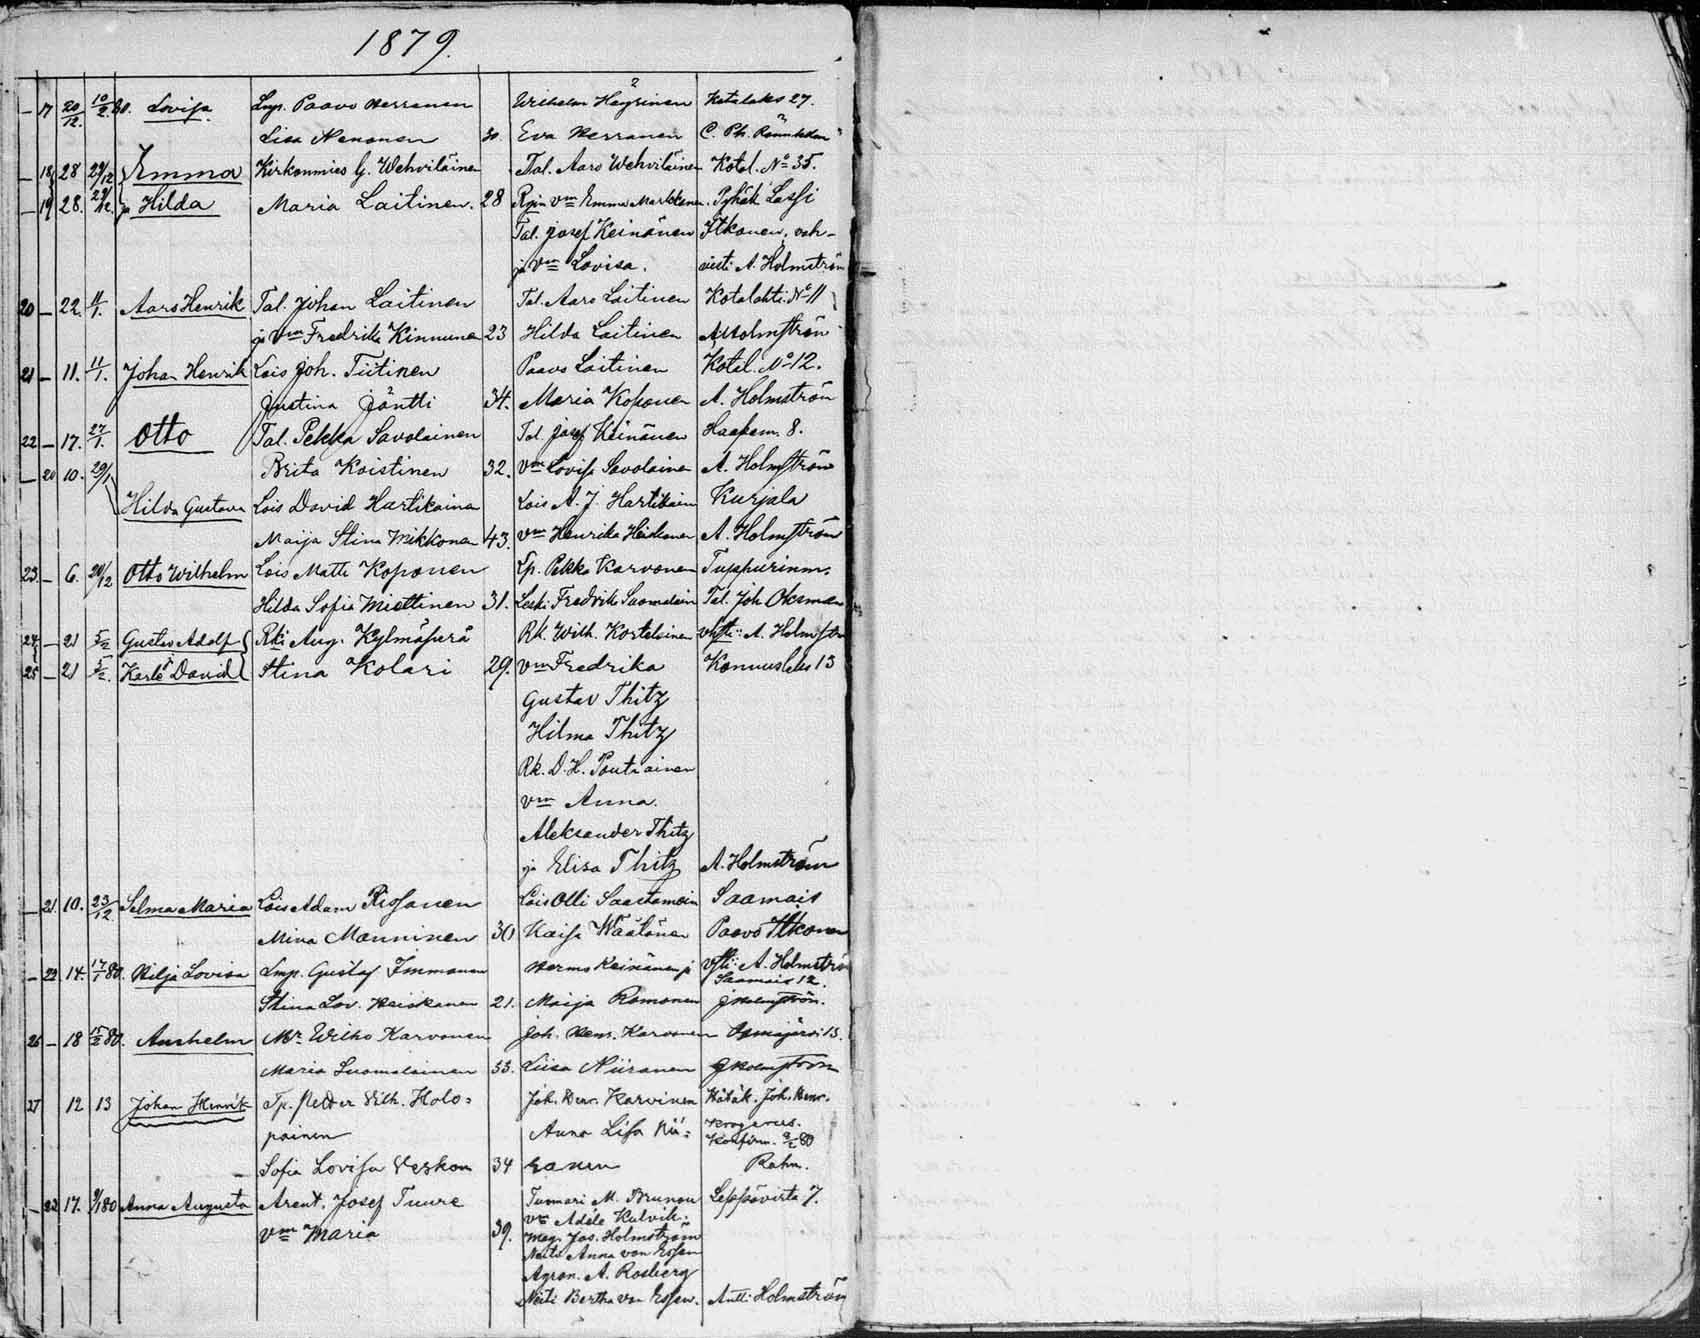 1879.
— 17 20/12. 10/2 80. Lovisa. Lmp. Paavo Herranen Wilhelm Häyrinen Kotalaks 27.
Liisa Nenonen 30 Eva Herranen C. Ph. Rönnholm
— 18 28 29/12 Emma Kirkonmies G. Wehviläinen Tal. Aaro Wehviläinen Kotal. No 35.
— 19 28. 29/12. ja Hilda Maria Laitinen. 28 Rgin vm Emma Markkanen. Pyhät Lassi
Tal. Josef Keinänen Itkonen, vah-
ja vm Lovisa. visti A. Holmström
20 — 22. 11/1. Aaro Henrik Tal. Johan Laitinen Tal. Aaro Laitinen Kotalahti No 11
ja vm Fredrika Kinnunen 23 Hilda Laitinen A Holmström
21 — 11. 11/1. Johan Henrik Lois Joh. Tiitinen Paavo Laitinen Kotal. No 12.
Justina Jäntti 34. Maria Koponen A. Holmström
22 — 17. 27/1. Otto Tal. Pekka Savolainen Tal. Josef Keinänen Haapam. 8.
— 20 10. 29/1 Brita Koistinen 32. vm Lovisa Savolainen A. Holmström
Hilda Gustava Lois David Hartikainen Lois A. J. Hartikain Kurjala
Maija Stina Mikkonen 43. vm Henrika Heiskanen A. Holmström
23 — 6. 20/12 Otto Wilhelm Lois Matti Koponen Lp. Pekka Karvonen Tuppurinm.
Hilda Sofia Miettinen 31. Leski Fredrik Suomalain Tal. Joh. Oksman
24 — 21 5/2 Gustav Adolf Rki Aug. Kylmäperä Rk. Wilh. Kortelainen vhsti: A. Holmström
25 — 21 5/2. Karl David Stina Kolari 29. vm Fredrika Konnuslaks 13
Gustav Thitz
Hilma Thitz
Rk. D. H. Poutiainen
vm Anna.
Aleksander Thitz
ja Elisa Thitz A. Holmström
— 21. 10. 23/12 Selma Maria Lois Adam Rissanen Lois Olli Saastamoin Saamais
Mina Manninen 30 Kaisa Väätänen Paavo Itkonen
— 22. 14. 17/1 80. Hilja Lovisa Lmp. Gustaf Immonen Herms Keinänen ja vsti: A. Holmström
Saamais 12.
Stina Lov. Heiskanen 21. Maija Romonen J Holmström.
26 — 18 15/2 80. Anshelm Mr. Wilho Karvonen Joh. Henr. Karvonen Osmajärvi 13.
Maria Suomalainen 33. Liisa Niiranen J Holmström
27 12 13 Johan Henrik Tp. Petter Vilh. Holo=
Joh. Henr. Karvinen Kätäk. Joh. Henr.
painen Anna Lisa Nii= Krogerus.
Konfirm. 9/2 80
Sofia Lovisa Veskon 34 ranen Rahm.
— 23 17. 9/1 80 Anna Augusta Arent. Josef Tuure Tuomari M. Brunou Leppävirta 7.
vm Maria 39. vm Adéle Kulvik.
Mag. Jos. Holmström
Neito Anna von Essen
Agron. A. Rosberg
Neiti Bertha von Essen. Antti Holmström